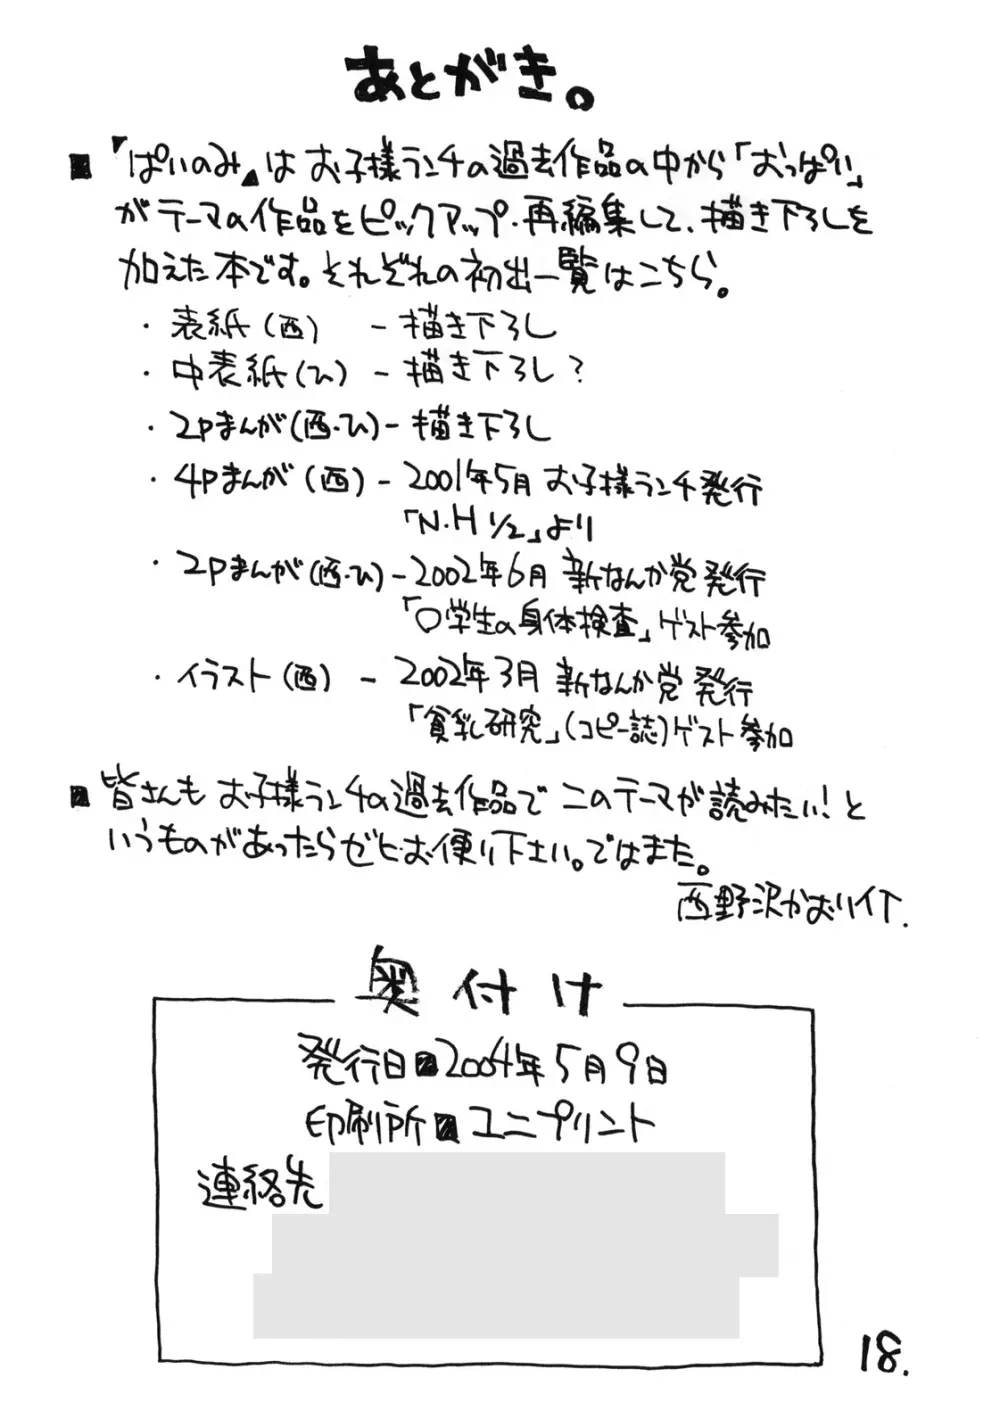 あとがき。
■『ぱいのみ』は お子様ランチの過去作品の中から「おっぱい」
がテーマの作品をピックアップ・再編集して、描き下ろしを
加えた本です。それぞれの初出一覧はこちら。
・表紙(西) －描き下ろし
・中表紙(ひ) －描き下ろし?
・2Pまんが(西・ひ)－描き下ろし
・4Pまんが(西)－2001年5月 お子様ランチ発行
「N・H 1/2」より
・2Pまんが(西・ひ)－2002年6月 新なんか党発行
「○学生の身体検査」ゲスト参加
・イラスト(西) － 2002年3月 新なんか党発行
「貧乳研究」(コピー誌)ゲスト参加
■皆さんも お子様ランチの過去作品で このテーマが読みたい!と
いうものがあったらゼヒお便り下さい。ではまた。
西野沢かおり
奥付け
発行日■2004年5月9日
印刷所■ユニプリント
連絡先
18.